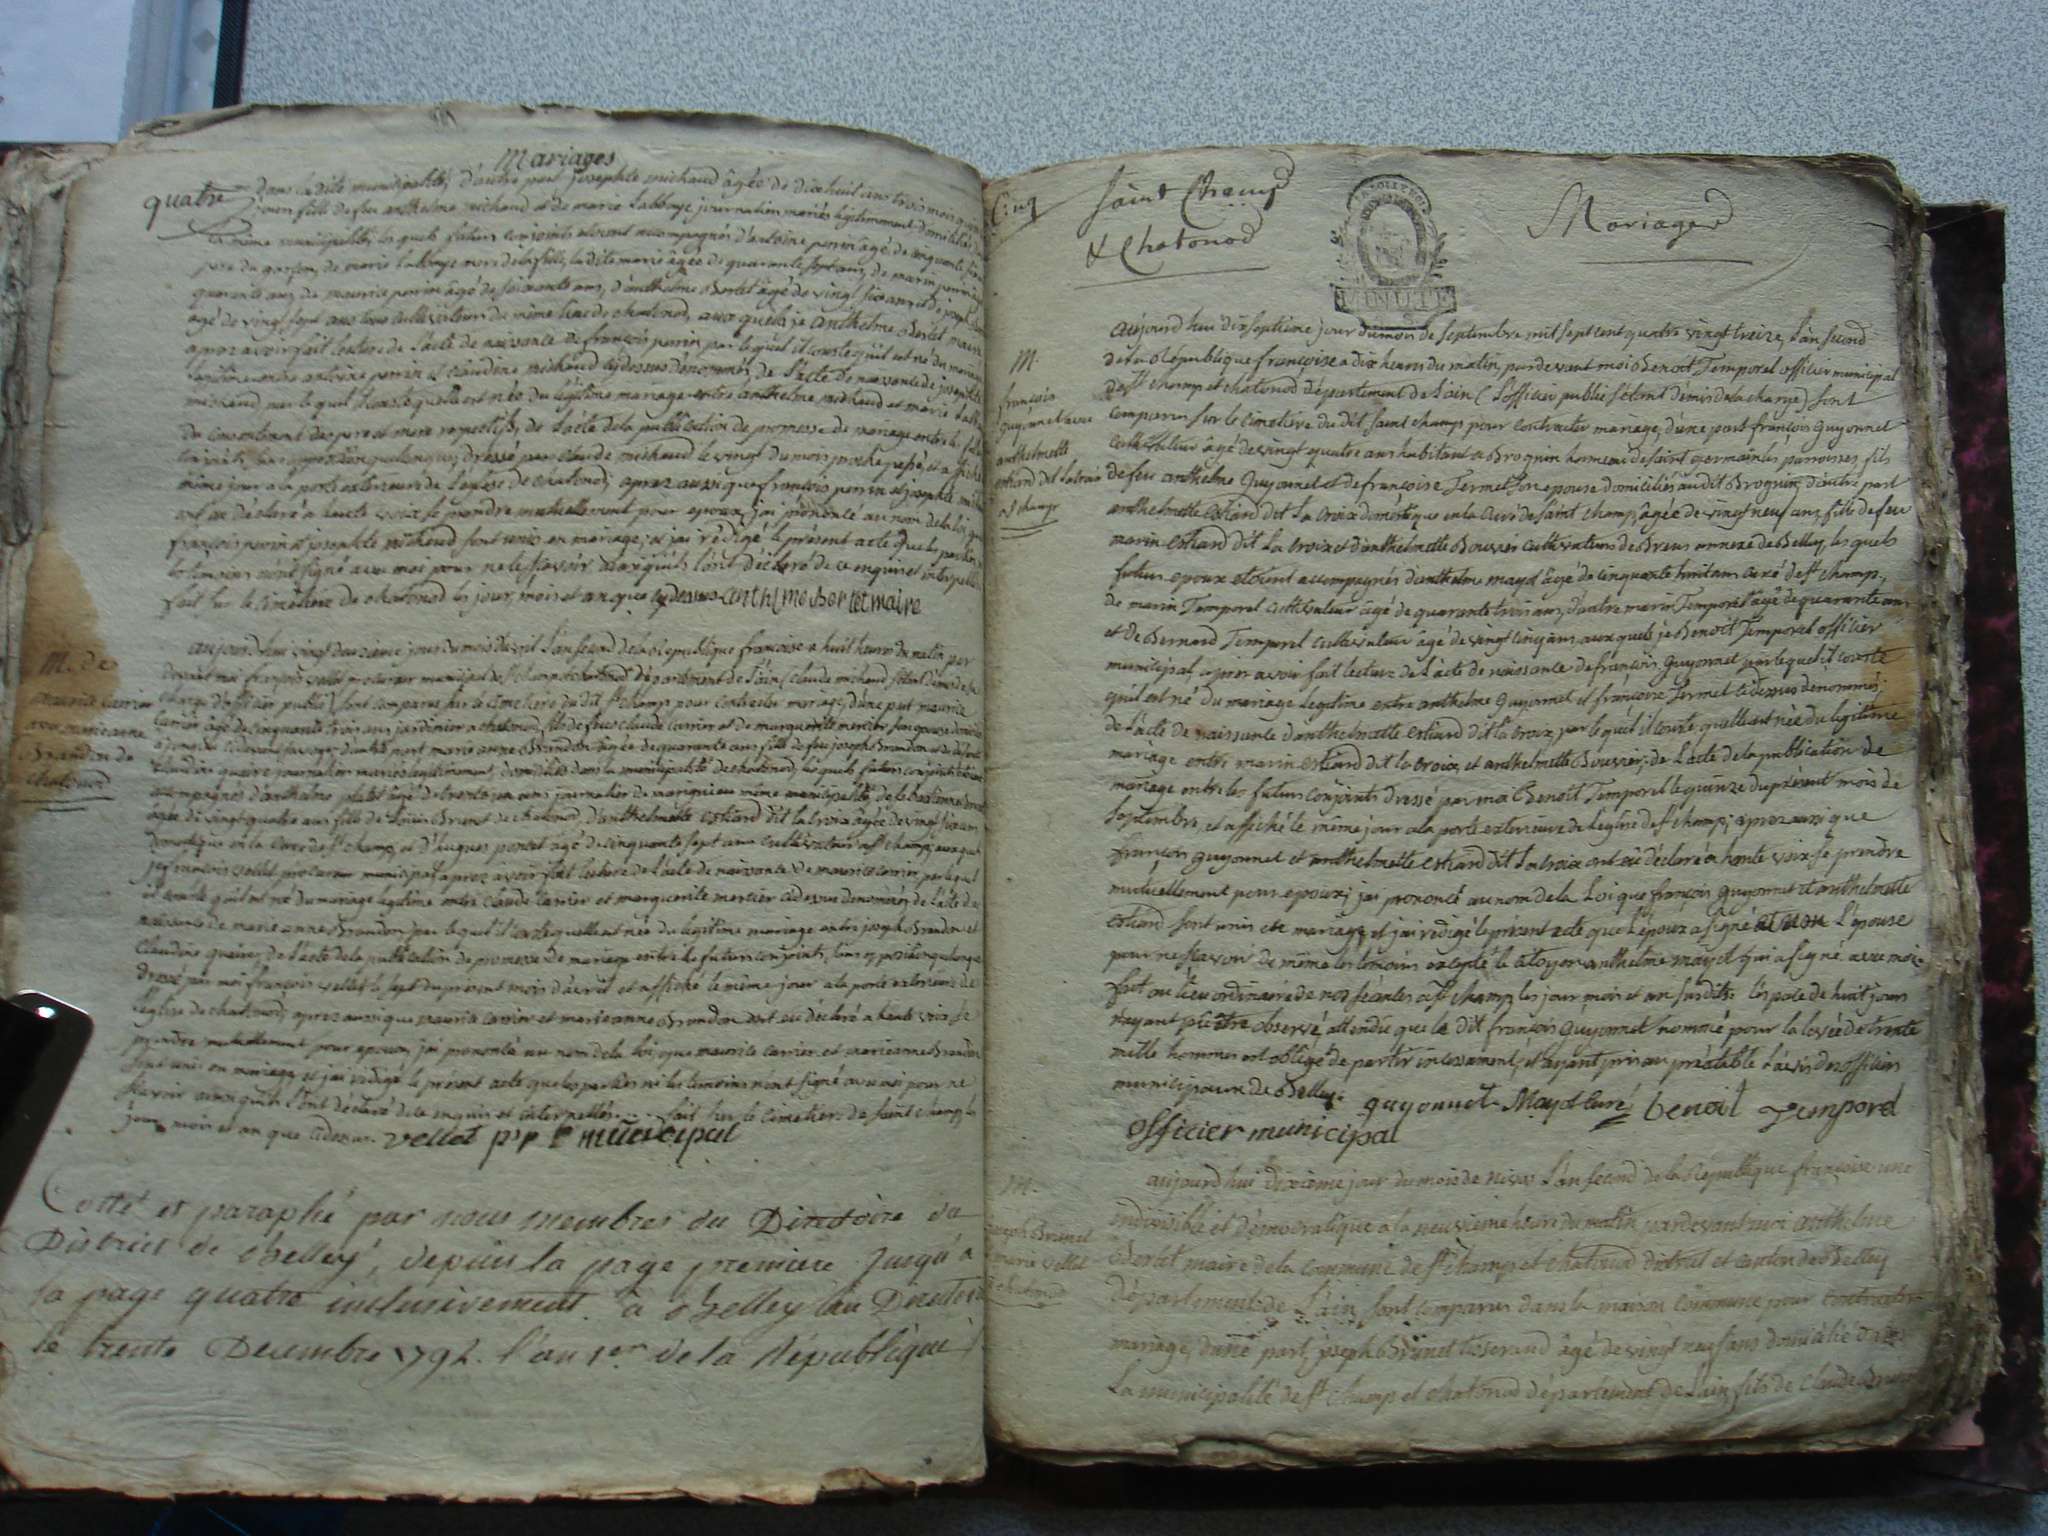 Mariages
quatre
dans la dite municipalité, d'autre part josephte michaud âgée de dixhuit ans trois mois
fille de feu anthelme michaud et de marie Labbaye journalien mariés légitimement
la même municipalité, les quels futurs conjoints étoient accompagnés d'antoine perrin âgé de cinquante
père du garçon, de marie Labbaye mere de la fille, la dite marie âgée de quarante sept ans, de marin perrin
quarante ans, de maurice perrin âgé de soixante ans, d'anthelme Bertet âgé de vingt six ans et de joseph
âgé de vingt sept ans tous cultivateurs du même lieu de chatonod, aux quels je anthelme Bertet maire
aprez avoir fait lecture de l'acte de naissance de françois perrin par le quel il conste qu'il est né du mariage
légitime entre antoine perrin et claudine michaud cydessus dénommés, de l'acte de naissance de josephte
michaud, par le quel il conste quelle est née du légitime mariage entre anthelme michaud et marie
du consentement des pere et mere respectifs, de l'acte de la publication de promesse de mariage entre les
dressé par claude michaud le vingt du mois proche passé, et affiché
même jour a la porte exterieure de l'église de chatonod; aprez aussi que françois perrin et josephte
ont déclaré a haute voix se prendre mutuellement pour epoux, jai prononcé au nom de la loi, que
françois perrin et josephte michaud sont unis en mariage, et jai rédigé le présent acte que les parties
les temoins n'ont signé avec moi pour ne le scavoir ainsi quils l'ont déclaré de ce enquis et interpellés
fait sur le cimetiere de chatonod les jour, mois et an que cydessus anthelme Bertet maire
M. de
maurice carrier
avec marieanne
Brandon de
chatonod
aujourd'hui vingt deuxieme jour du mois d'avril l'an second de la république françoise a huit heures du matin par
devant moi françois vellet procureur municipal de st champ et chatonod département de l'ain (claude michaud s'étant démis de sa
charge d'officier public) sont comparus sur le cimetiere du dit st champ pour contracter mariage, d'une part maurice
carrier âgé de cinquante trois ans jardinier a chatonod, fils de feu claude carrier et de marguerite mercier son epouse
d'autre part marie anne Brandon âgée de quarante ans fille de feu joseph Brandon et de
claudine quaire journalien mariés légitimement, domiciliés dans la municipalité de chatonod, les quels futurs conjoints étoient
accompagnés d'anthelme platet âgé de trente un ans journalier de marguieu même municipalité, de la
âgée de vingt quatre ans fille de Louis Brunet de chatonod, d'anthelmette Estiard dit la croix âgée de vingt six ans
domestique en la cure de st champ, et d'hugues poncet âgé de cinquante sept ans cultivateur a st champ, aux quels
je françois vellet procureur municipal aprez avoir fait lecture de l'acte de naissance de maurice carrier, par le quel
il conste qu'il est né du mariage légitime entre claude carrier et marguerite mercier cidessus dénommés, de l'acte de
naissance de marie anne Brandon par le quel il conste quelle est née du légitime mariage entre joseph Brandon et
claudine quaire, de l'acte de la publication de promesse de mariage entre les futurs conjoints,
dressé par moi françois vellet le sept du présent mois d'avril et affiché le même jour a la porte exterieure de
l'église de chatonod; aprez aussi que maurice carrier et marieanne Brandon ont eu déclaré a haute voix se
prendre mutuellement pour epoux, jai prononcé au nom de la loi, que maurice carrier et marieanne Brandon
sont unis en mariage, et jai rédigé le présent acte que les parties ni les temoins n'ont signé avec moi pour ne
scavoir ainsi qu'ils l'ont déclaré de ce enquis et interpellés.... fait sur le cimetiere de saint champ les
jour, mois et an que cidessus. vellet pr municipal
Cotté et paraphé par nous membres du Directoire du
District de Belley, depuis la page premiere jusqu'a
la page quatre inclusivement. à Belley au Directoire
le trente Decembre 1792. l'an 1er de la République
Cinq
Saint Champ
& Chatonod
LA LOI LE ROI
MINUTE
Mariages
M.
françois
guyonnet avec
anthelmette
estiard dit lacroix
st champ
aujourd'hui dixseptieme jour du mois de septembre mil sept cent quatre vingt treize, l'an second
de la république françoise a dix heures du matin, par devant moi Benoit Temporel officier municipal
de st champ et chatonod département de l'ain (l'officier public s'étant démis de la charge) sont
comparus sur le cimetiere du dit saint champ pour contracter mariage, d'une part françois Guyonnet
cultivateur âgé de vingt quatre ans habitant a Brognin hameau de saint germain les paroisses, fils
de feu anthelme Guyonnet et de françoise Termet son epouse domiciliés au dit Brognin, d'autre part
anthelmette estiard dit La croix domestique en la cure de saint champ, âgée de vingt neuf ans, fille de feu
marin estiard dit La croix et d'anthelmette Bouvier cultivateurs de Brens annexe de Belley, les quels
futurs epoux étoient accompagnés d'anthelme mayot âgé de cinquante huit ans curé de st champ,
de marin Temporel cultivateur âgé de quarante trois ans, d'autre marin Temporel âgé de quarante ans
et de Bernard Temporel cultivateur âgé de vingt cinq ans, aux quels je Benoit Temporel officier
municipal, aprez avoir fait lecture de l'acte de naissance de françois Guyonnet par le quel il conste
quil est né du mariage legitime entre anthelme Guyonnet et françoise Termet cidessus dénommés,
de l'acte de naissance d'anthelmette estiard dit la croix, par le quel il conste, quelle est née du légitime
mariage entre marin estiard dit la croix, et anthelmette Bouvier; de l'acte de la publication de
mariage entre les futurs conjoints dressé par moi Benoit Temporel le quinze du présent mois de
septembre, et affiché le même jour a la porte exterieure de l'église de st champ; aprez aussi que
françois guyonnet et anthelmette estiard dit La croix ont eu déclaré a haute voix se prendre
mutuellement pour epoux; jai prononcé au nom de la Loi que françois guyonnet et anthelmette
estiard sont unis en mariage, et jai rédigé le présent acte que l'époux a signé et non l'épouse
pour ne scavoir de même les temoins excepté le citoyen anthelme mayot qui a signé avec moi.
fait au lieu ordinaire de nos séances a st champ, les jour mois et an susdits. l'éspace de huit jours
n'ayant pu être observé, attendu que le dit françois Guyonnet nommé pour la levée de trente
mille hommes est obligé de partir incessament, et ayant pris au préalable l'avis des officiers
municipaux de Belley. guyonnet Mayot Curé benoit Temporel
officier municipal
M.
joseph Brunet
marie vellet
chatonod
aujourd'hui dixieme jour du mois de nivos l'an second de la république françoise une
indivisible et démocratique a la neuvieme heure du matin, pardevant moi anthelme
Bertet maire de la commune de st champ et chatonod district et canton de Belley
département de l'ain, sont comparus dans la maison commune pour contracter
mariage, d'une part, joseph Brunet tisserand âgé de vingt neuf ans domicilié dans
la municipalité de st champ et chatonod département de l'ain, fils de claude Brunet